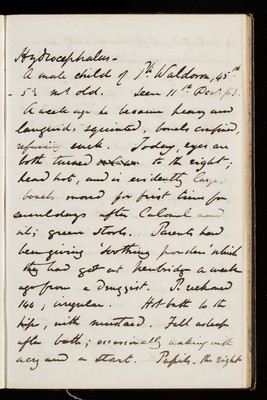 Hydrocephalus -
A male child of Jth Waldoron, 45
- 5½ m old. Seen 11th Decr 63.
A week ago he became heavy and
languid, squinted, bowels confined,
refusing suck. Today, eyes are
both turned to the right;
head hot, and is evidently large;
bowels moved for first time for
several days after Calomel and
oil; green stools. Parents had
been giving 'soothing powders' which
they had got at Newbridge a week
ago from a Druggist. P. reckoned
140; irregular. Hot bath to the
hips, with mustard. Fell asleep
after bath; occasionally waking with
a cry and a start. Pupils, the right